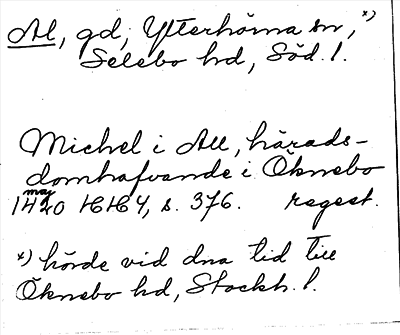 Al, gd, Ytterhörna sn, x)
Selebo hd, Söd. l.
Michel i All, härads-
domhafvande i Öknebo
maj
1420 HH 4, s. 376. regest.
x) hörde vid dna tid till
Öknebo hd, Stockh. l.